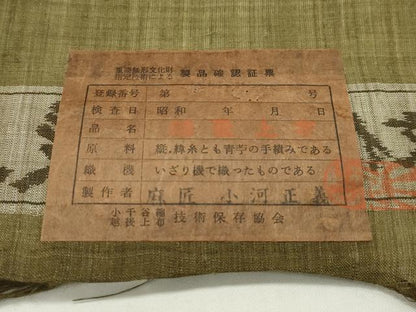 重要無形文化財
指定技術による 製品確認証票
登録番号 第 号
検査日 昭和 年 月 日
品名
原料 経.緯糸とも青苧の手績みである
織機 いざり機で織ったものである
製作者 麻匠 小河正義
小千谷縮
越後上布 技術保存協会